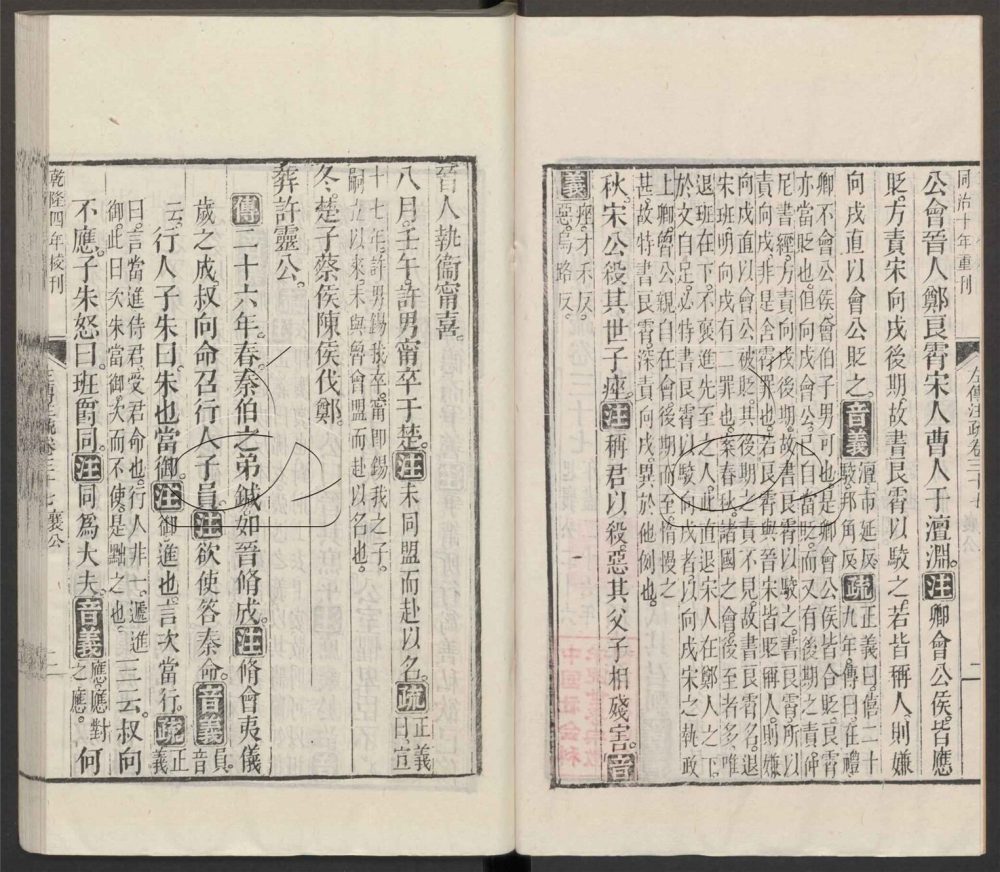 同治十年重刊
左傳注疏卷三十七 襄公
二
公會晉人鄭良霄宋人曹人于澶淵。注卿會公侯皆應
貶方責宋向戌後期故書良霄以駮之若皆稱人則嫌
向戌直以會公貶之。音義澶市延反。駮邦角反。疏正義曰僖二十九年傳曰在禮
卿不會公侯會伯子男可也是卿會公侯皆合貶良霄
亦當貶也但向戌會公已自當貶而又有後期之責仲
尼書經方責向戌後期故書良霄以駮之書良霄所以
責向戌非是舍霄罪也若良霄與晉宋皆貶稱人則嫌
向戌直以會公被貶其後期之責不見故書良霄名退
宋班明向戌有二罪也案春秋諸國之會後至者多唯
退班在下不褒進先至之人此直退宋人在鄭人之下
於文自足必特書良霄以駮向戌者以向戌宋之執政
上卿魯公親自在會後期而至惰慢之
甚故特書良霄深責向戌異於他例也
秋宋公殺其世子痤。注稱君以殺惡其父子相殘害。音
義痤才禾反。惡烏路反。
晉人執衞甯喜
八月壬午許男甯卒于楚。注未同盟而赴以名。疏正義曰宣
十七年許男錫我卒甯即錫我之子
嗣立以來未與魯會盟而赴以名也
冬楚子蔡侯陳侯伐鄭
葬許靈公。
傳二十六年春秦伯之弟鍼如晉脩成。注脩會夷儀
歲之成叔向命召行人子員。注欲使答秦命。音義員音
云。行人子朱曰朱也當御。注御進也言次當行。疏正義
曰言當進侍君受君命也行人非一遞進
御此日次朱當御次而不使是黜之也
三云叔向
不應子朱怒曰班爵同。注同爲大夫。音義應應對之應。何
乾隆四年校刊
卷三十七 襄公
二